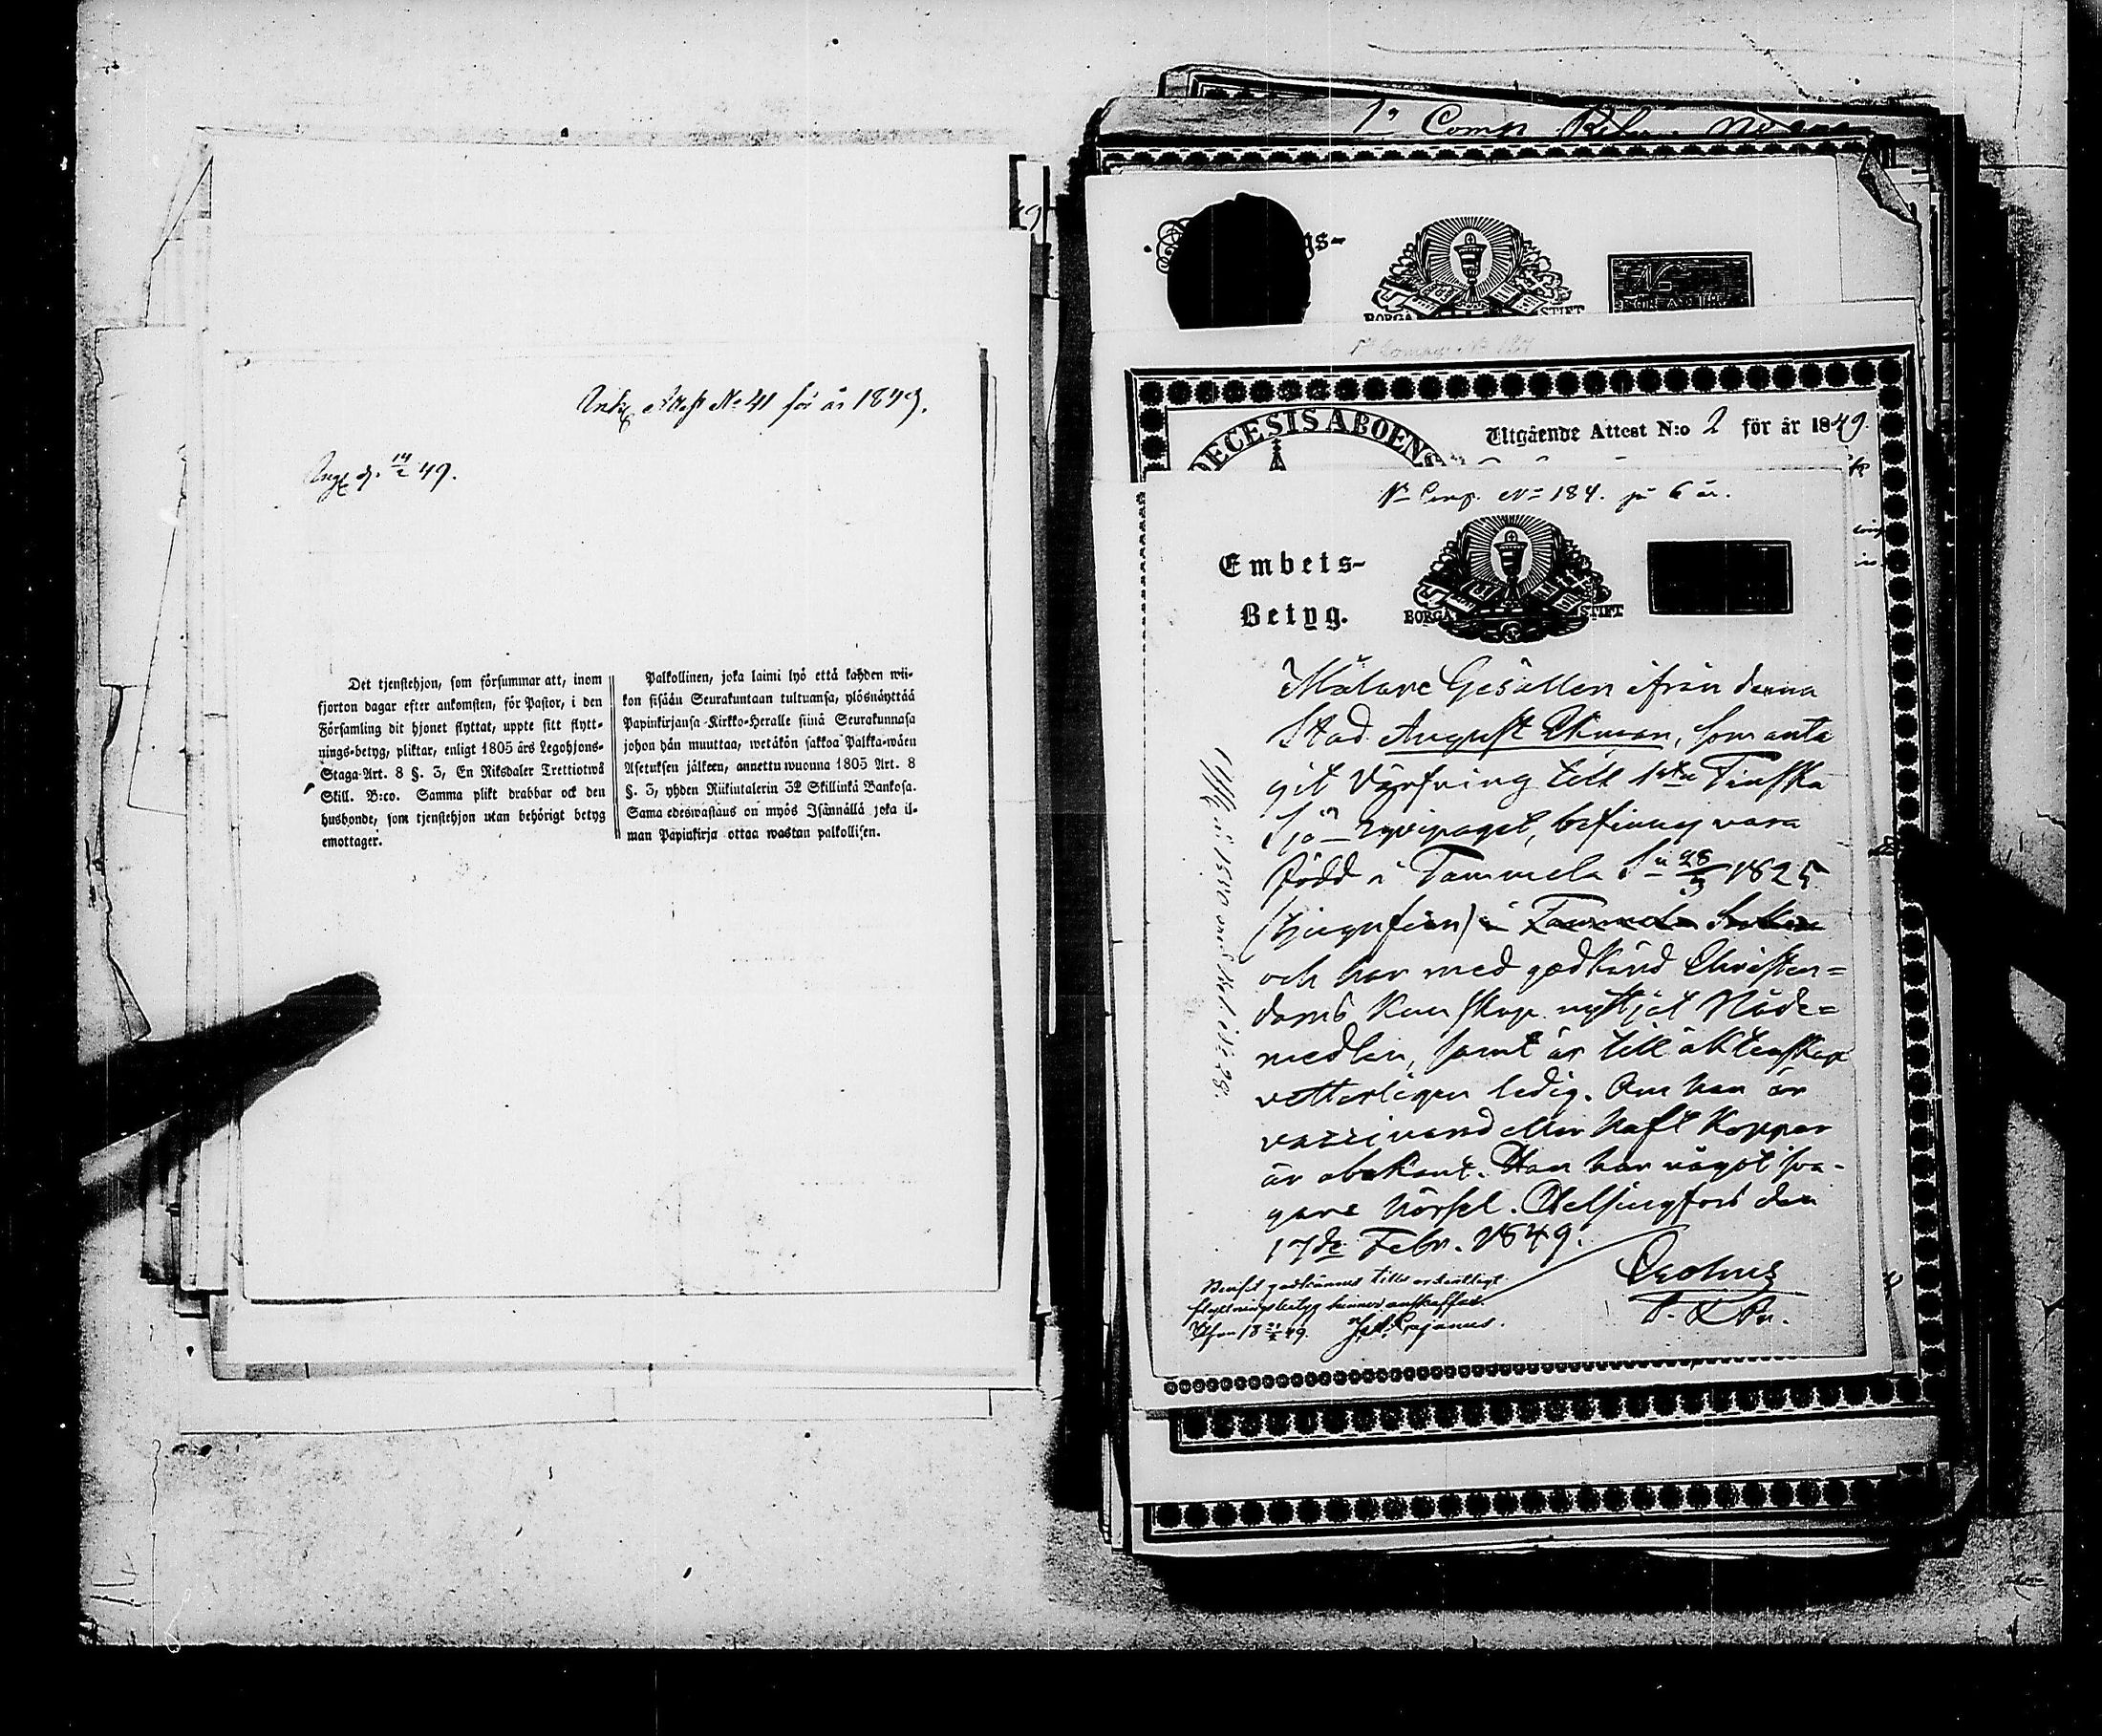 Ank. Attest No 41 för år 1849.
Ang. d. 14/2 49.
Det tjenstehjon, som försummar att, inom
fjorton dagar efter ankomsten, för Pastor, i den
Församling dit hjonet flyttat, uppte sitt flytt-
nings-betyg, pliktar, enligt 1805 års Legohjons-
Staga Art. 8 §. 3, En Riksdaler Trettiotwå
Skill. B:co. Samma plikt drabbar ock den
husbonde, som tjenstehjon utan behörigt betyg
emottager.
Palkollinen, joka laimi lyö että kahden wii-
kon sisään Seurakuntaan tultuansa, ylösnäyttää
Papinkirjansa Kirkko-Heralle siinä Seurakunnasa
johon hän muuttaa, wetäkön sakkoa Palkka-wäen
Asetuksen jälkeen, annettu wuonna 1805 Art. 8
§. 3, yhden Riikintalerin 32 Skillinkä Bankosa.
Sama edeswastaus on myös Isännällä joka il-
man Papinkirja ottaa wastan palkollisen.
1a Comp
gs-
BORGÅ STIFT
Utgående Attest N:o 2 för år 1849.
DECESIS ABOENS
1a Comp. No 184. på 6 år.
Embets-
Betyg.
BORGÅ STIFT
Målare Gesällen ifrån denna
Stad August Ekman, som anta
git Värfning till 1sta Finska
Sjö-Equipaget, befinnes vara
född i Tammela den 28/3 1825
(tjugufem) i Tammela Socken
och har med godkänd Christen=
doms Kunskap nyttjat Nåde=
medlen, samt är till äktenskap
vetterligen ledig. Om han är
vaccinerad eller haft Koppor
är obekant. Han har något sva-
gare hörsel. Helsingfors den
17de Febr. 1849.
Crohns
Beviset godkännes tills ordentligt
flyttningsbetyg hinner anskaffas.